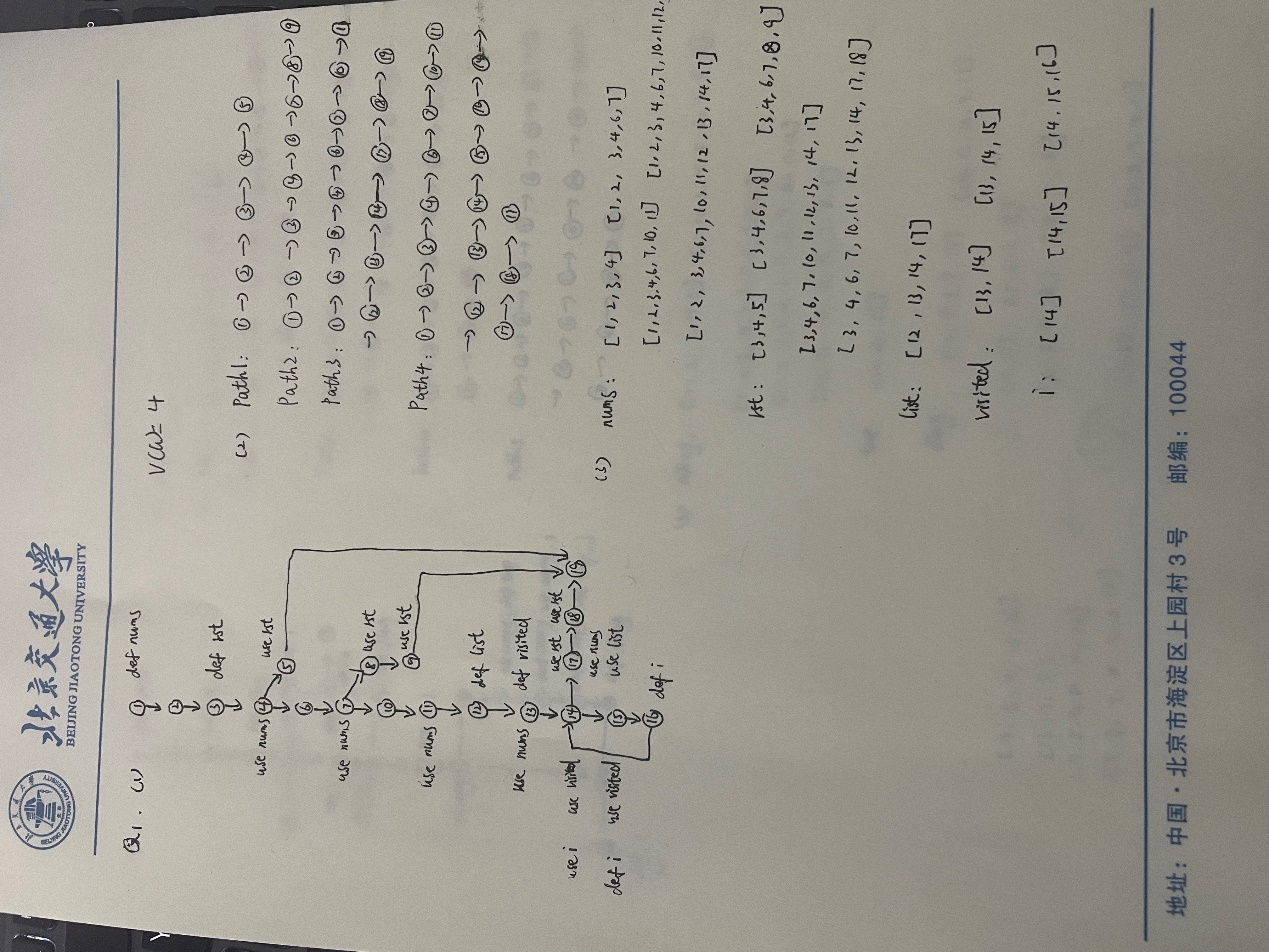 北京交通大学
BEIJING JIAOTONG UNIVERSITY
Q1. (1)
① def nums
②
③ def rst
use nums ④
⑤ use rst
⑥
use nums ⑦
⑧ use rst
⑨ use rst
⑩
use nums ⑪
⑫ def list
use nums ⑬ def visited
use i use visited ⑭ → ⑰ → ⑱ → ⑲
use rst use rst
use nums
def i use visited ⑮ use list
⑯ def i
V(G)= 4
(2) Path1: ① → ② → ③ → ④ → ⑤
Path2: ① → ② → ③ → ④ → ⑥ → ⑦ → ⑧ → ⑨
Path3: ① → ② → ③ → ④ → ⑥ → ⑦ → ⑩ → ⑪
→ ⑫ → ⑬ → ⑭ → ⑰ → ⑱ → ⑲
Path4: ① → ② → ③ → ④ → ⑥ → ⑦ → ⑩ → ⑪
→ ⑫ → ⑬ → ⑭ → ⑮ → →
⑰ → ⑱ →
(3) nums: [1, 2, 3, 4] [1, 2, 3, 4, 6, 7]
[1, 2, 3, 4, 6, 7, 10, 11] [1, 2, 3, 4, 6, 7, 10, 11, 12,
[1, 2, 3, 4, 6, 7, 10, 11, 12, 13, 14, 17]
rst: [3, 4, 5] [3, 4, 6, 7, 8] [3, 4, 6, 7, 8, 9]
[3, 4, 6, 7, 10, 11, 12, 13, 14, 17]
[3, 4, 6, 7, 10, 11, 12, 13, 14, 17, 18]
list: [12, 13, 14, 17]
visited: [13, 14] [13, 14, 15]
i: [14] [14, 15] [14, 15, 16]
地址: 中国·北京市海淀区上园村3号 邮编: 100044